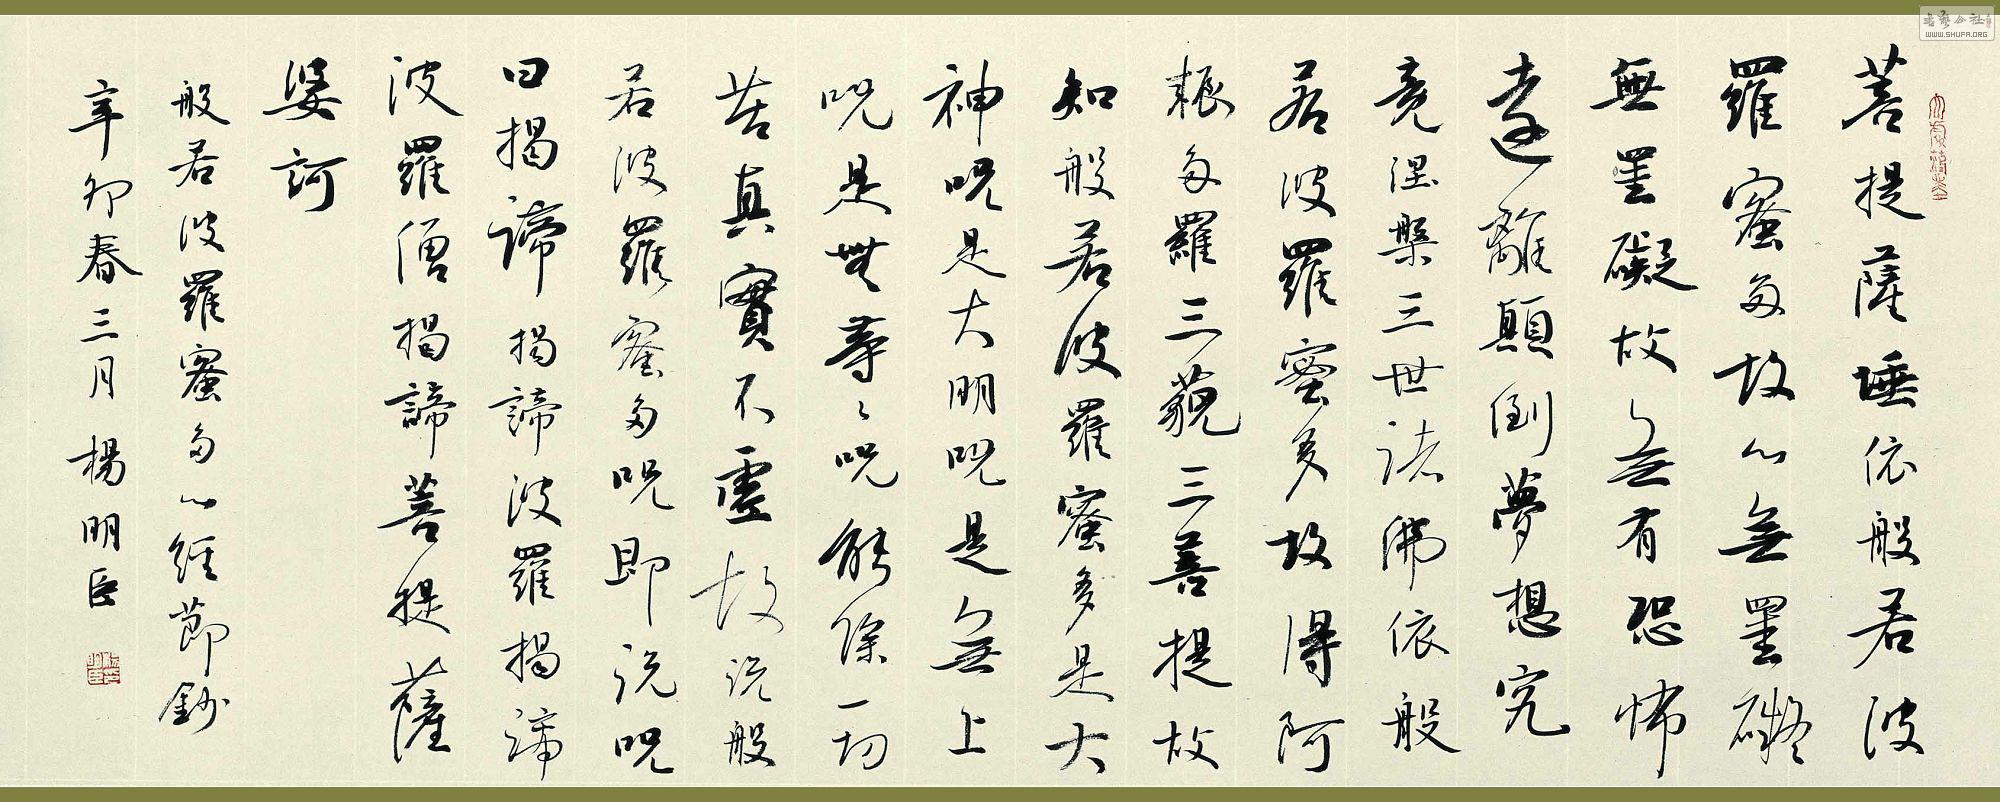 菩提薩埵依般若波
羅蜜多故心無罣礙
無罣礙故無有恐怖
遠離顛倒夢想究
竟涅槃三世諸佛依般
若波羅蜜多故得阿
耨多羅三藐三菩提故
知般若波羅蜜多是大
神呪是大明呪是無上
呪是無等々呪能除一切
苦真實不虛故說般
若波羅蜜多呪即說呪
曰揭諦揭諦波羅揭諦
波羅僧揭諦菩提薩
婆訶
般若波羅蜜多心經節鈔
辛卯春三月楊明臣
WWW.SHUFA.ORG